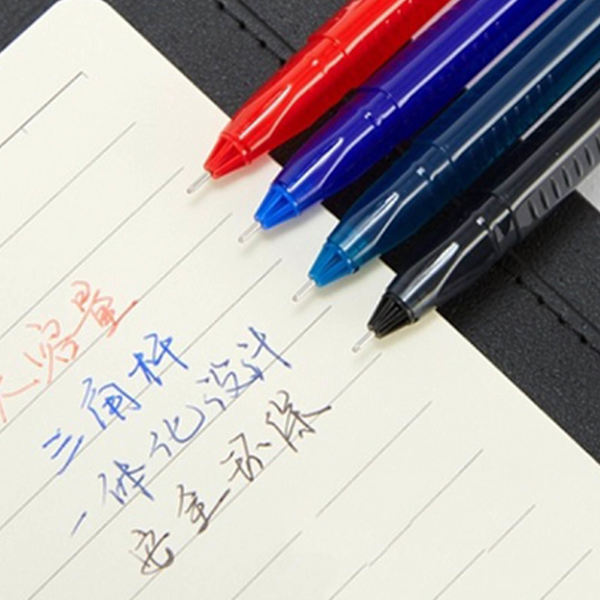 大容量
三角杆
一体化设计
安全环保